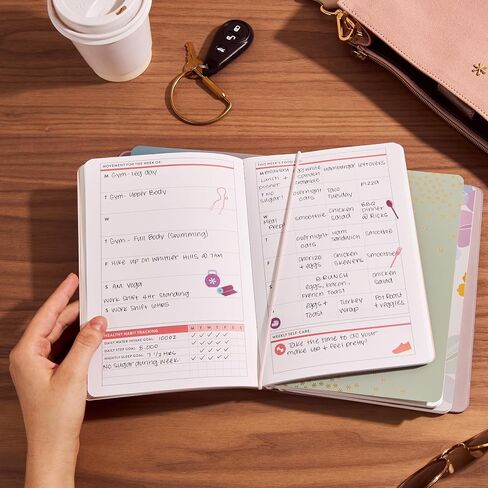 MOVEMENT FOR THE WEEK OF:
M Gym - Leg day
T Gym - Upper Body
W
T Gym - Full Body (Swimming)
F Hike up on Whittier Hills @ 7AM
S AM Yoga
Work Shift 4Hr Standing
S Work Shift 6Hrs
HEALTHY HABIT TRACKING M T W T F S S
DAILY WATER INTAKE GOAL: 100oz
DAILY STEP GOAL: 8,000
NIGHTLY SLEEP GOAL: 7 1/2 Hrs
No Sugar during week
THIS WEEK'S FOOD
M Breakfast egg white hamburger leftovers
Lunch + spinach
Dinner scramble
T No overnight Taco Pizza
sugar! oats Tuesday
W smoothie chicken BBQ
Meal salad Dinner
Prep @ Ricks
T overnight ham smoothie
oats sandwich
F chorizo chicken chicken
+ eggs skewers salad
S BRUNCH
eggs, bacon, +
French Toast
S eggs + Turkey Pot Roast
French Wrap + veggies
Toast
WEEKLY SELF-CARE:
Take the time to do your
make up + feel pretty!